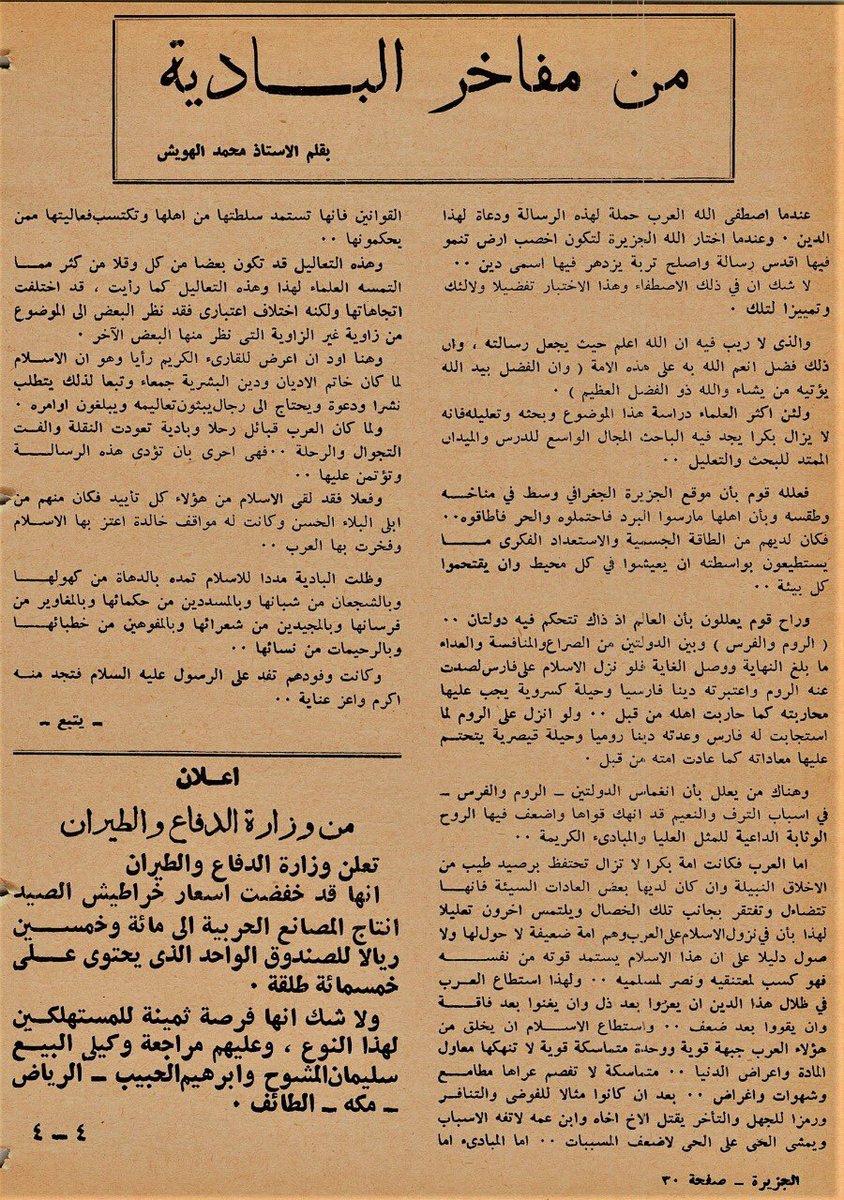 من مفاخر البادية
بقلم الاستاذ محمد الهويش
عندما اصطفى الله العرب حملة لهذه الرسالة ودعاة لهذا
الدين ٠ وعندما اختار الله الجزيرة لتكون اخصب ارض تنمو
فيها اقدس رسالة واصلح تربة يزدهر فيها اسمى دين ٠٠
لا شك ان في ذلك الاصطفاء وهذا الاختبار تفضيلا ولالئك
وتمييزا لتلك ٠
والذى لا ريب فيه ان الله اعلم حيث يجعل رسالته ، وان
ذلك فضل انعم الله به على هذه الامة ( وان الفضل بيد الله
يؤتيه من يشاء والله ذو الفضل العظيم ) ٠
ولئن اكثر العلماء دراسة هذا الموضوع وبحثه وتعليله فانه
لا يزال بكرا يجد فيه الباحث المجال الواسع للدرس والميدان
الممتد للبحث والتعليل ٠٠
فعلله قوم بأن موقع الجزيرة الجغرافي وسط في مناخه
وطقسه وبأن اهلها مارسوا البرد فاحتملوه والحر فأطاقوه٠٠
فكان لديهم من الطاقة الجسمية والاستعداد الفكرى مــا
يستطيعون بواسطته ان يعيشوا في كل محيط وان يقتحموا
كل بيئة ٠٠
وراح قوم يعللون بأن العالم اذ ذاك تتحكم فيه دولتان ٠٠
( الروم والفرس ) وبين الدولتين من الصراع والمنافسة والعداء
ما بلغ النهاية ووصل الغاية فلو نزل الاسلام على فارس لصدت
عنه الروم واعتبرته دينا فارسيا وحيلة كسروية يجب عليها
محاربته كما حاربت اهله من قبل ٠٠ ولو انزل على الروم لما
استجابت له فارس وعدته دينا روميا وحيلة قيصرية يتحتـم
عليها معاداته كما عادت امته من قبل ٠
وهناك من يعلل بأن انغماس الدولتين ـ الروم والفرس ـ
في اسباب الترف والنعيم قد انهك قواها واضعف فيها الروح
الوثابة الداعية للمثل العليا والمبادىء الكريمة ٠٠
اما العرب فكانت امة بكرا لا تزال تحتفظ برصيد طيب من
الاخلاق النبيلة وان كان لديها بعض العادات السيئة فانهـا
تتضاءل وتفتقر بجانب تلك الخصال ويلتمس اخرون تعليلا
لهذا بأن في نزول الاسلام على العرب وهم امة ضعيفة لا حول لها ولا
صول دليلا على ان هذا الاسلام يستمد قوته من نفســه
فهو كسب لمعتنقيه ونصر لمسلميه ٠٠ ولهذا استطاع العرب
في ظلال هذا الدين ان يعزوا بعد ذل وان يغنوا بعد فاقـة
وان يقووا بعد ضعف ٠٠ واستطاع الاســلام ان يخلق من
هؤلاء العرب جبهة قوية ووحدة متماسكة قوية لا تنهكها معاول
المادة واعراض الدنيا ٠٠ متماسكة لا تفصم عراها مطامـع
وشهوات واغراض ٠٠ بعد ان كانوا مثالا للفوضى والتنافـر
ورمزا للجهل والتأخر يقتل الاخ اخاه وابن عمه لاتفه الاسباب
ويمشى الحى على الحى لاضعف المسببات ٠٠ اما المبادىء اما
القوانين فانها تستمد سلطتها من اهلها وتكتسب فعاليتها ممن
يحكمونها ٠٠
وهذه التعاليل قد تكون بعضا من كل وقلا من كثر ممـا
التمسه العلماء لهذا وهذه التعاليل كما رأيت ، قد اختلفت
اتجاهاتها ولكنه اختلاف اعتبارى فقد نظر البعض الى الموضوع
من زاوية غير الزاوية التى نظر منها البعض الآخر ٠
وهنا اود ان اعرض للقارىء الكريم رأيا وهو ان الاسـلام
لما كان خاتم الاديان ودين البشرية جمعاء وتبعا لذلك يتطلب
نشرا ودعوة ويحتاج الى رجال يبثون تعاليمه ويبلغون اوامره ٠
ولما كان العرب قبائل رحلا وبادية تعودت النقلة والفت
التجوال والرحلة ٠٠ فهى احرى بان تؤدى هذه الرسالــة
وتؤتمن عليها ٠٠
وفعلا فقد لقى الاسلام من هؤلاء كل تأييد فكان منهم من
ابلى البلاء الحسن وكانت له مواقف خالدة اعتز بها الاسـلام
وفخرت بها العرب ٠٠
وظلت البادية مددا للاسلام تمده بالدهاة من كهولهـا
وبالشجعان من شبانها وبالمسددين من حكمائها وبالمغاوير من
فرسانها وبالمجيدين من شعرائها وبالمفوهين من خطبائهـا
وبالرحيمات من نسائها ٠٠
وكانت وفودهم تفد على الرسول عليه السلام فتجد منـه
اكرم واعز عناية ٠٠
ـ يتبع ـ
اعـلان
من وزارة الدفاع والطيران
تعلن وزارة الدفاع والطيران
انها قد خفضت اسعار خراطيش الصيد
انتاج المصانع الحربية الى مائة وخمســين
ريالا للصندوق الواحد الذى يحتوى عـلى
خمسمائة طلقة ٠
ولا شك انها فرصة ثمينة للمستهلكين
لهذا النوع ، وعليهم مراجعة وكيلى البيع
سليمان المشوح وابرهيم الحبيب ـ الرياض
ـ مكه ـ الطائف ٠
٤ ـ ٤
الجزيرة ـ صفحة ٣٠